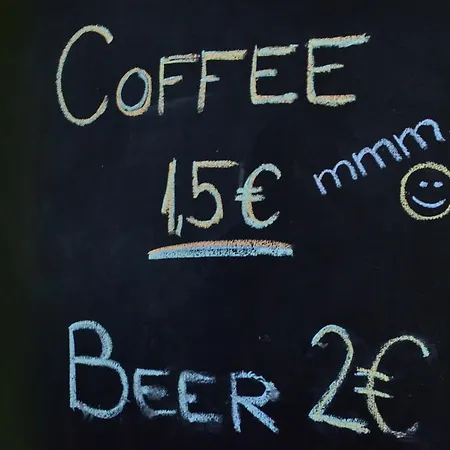 COFFEE
1,5€
mmm
BEER 2€